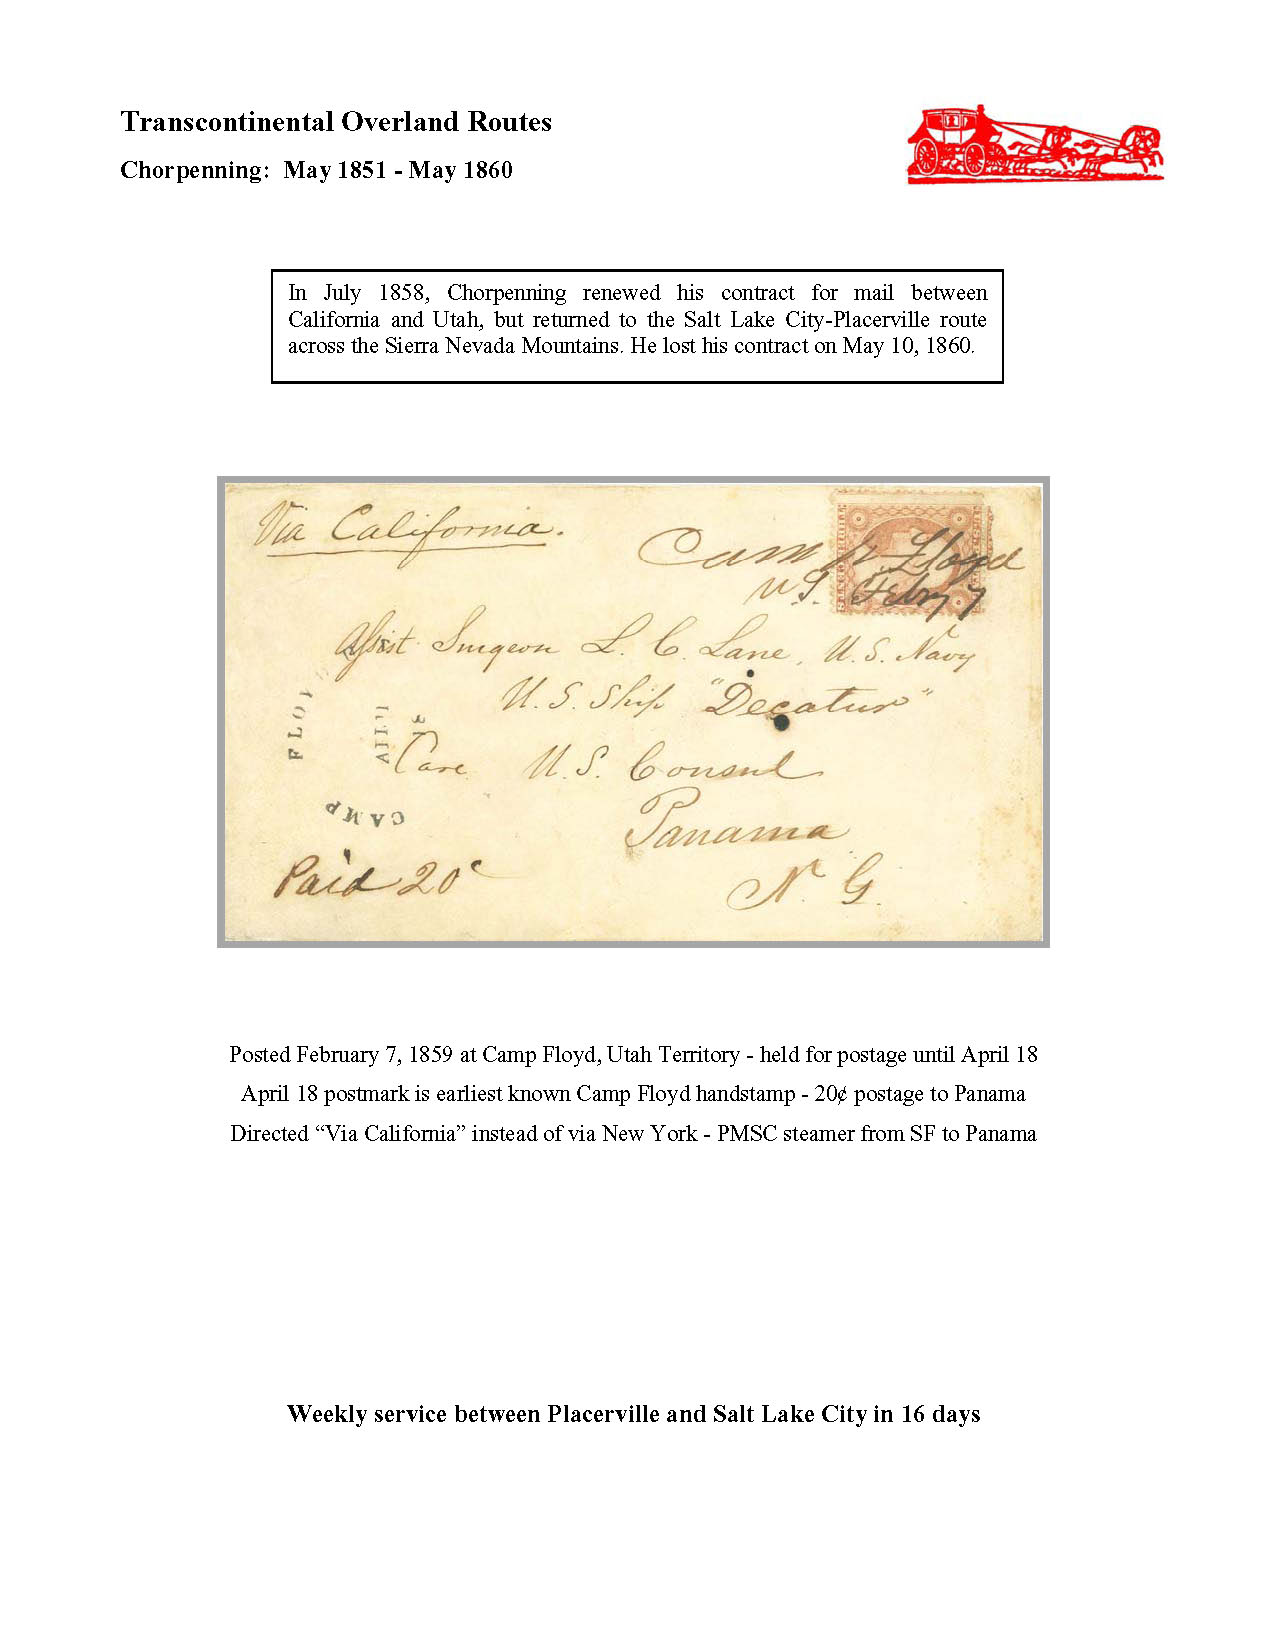 Transcontinental Overland Routes
Chorpenning: May 1851 - May 1860
In July 1858, Chorpenning renewed his contract for mail between
California and Utah, but returned to the Salt Lake City-Placerville route
across the Sierra Nevada Mountains. He lost his contract on May 10, 1860.
Via California.
Camp Floyd
U.T. Febry 7
Assist Surgeon L. C. Lane, U. S. Navy
U. S. Ship "Decatur"
Care U. S. Consul
Panama
N. G.
CAMP FLOY
Paid 20c
Posted February 7, 1859 at Camp Floyd, Utah Territory - held for postage until April 18
April 18 postmark is earliest known Camp Floyd handstamp - 20¢ postage to Panama
Directed “Via California” instead of via New York - PMSC steamer from SF to Panama
Weekly service between Placerville and Salt Lake City in 16 days